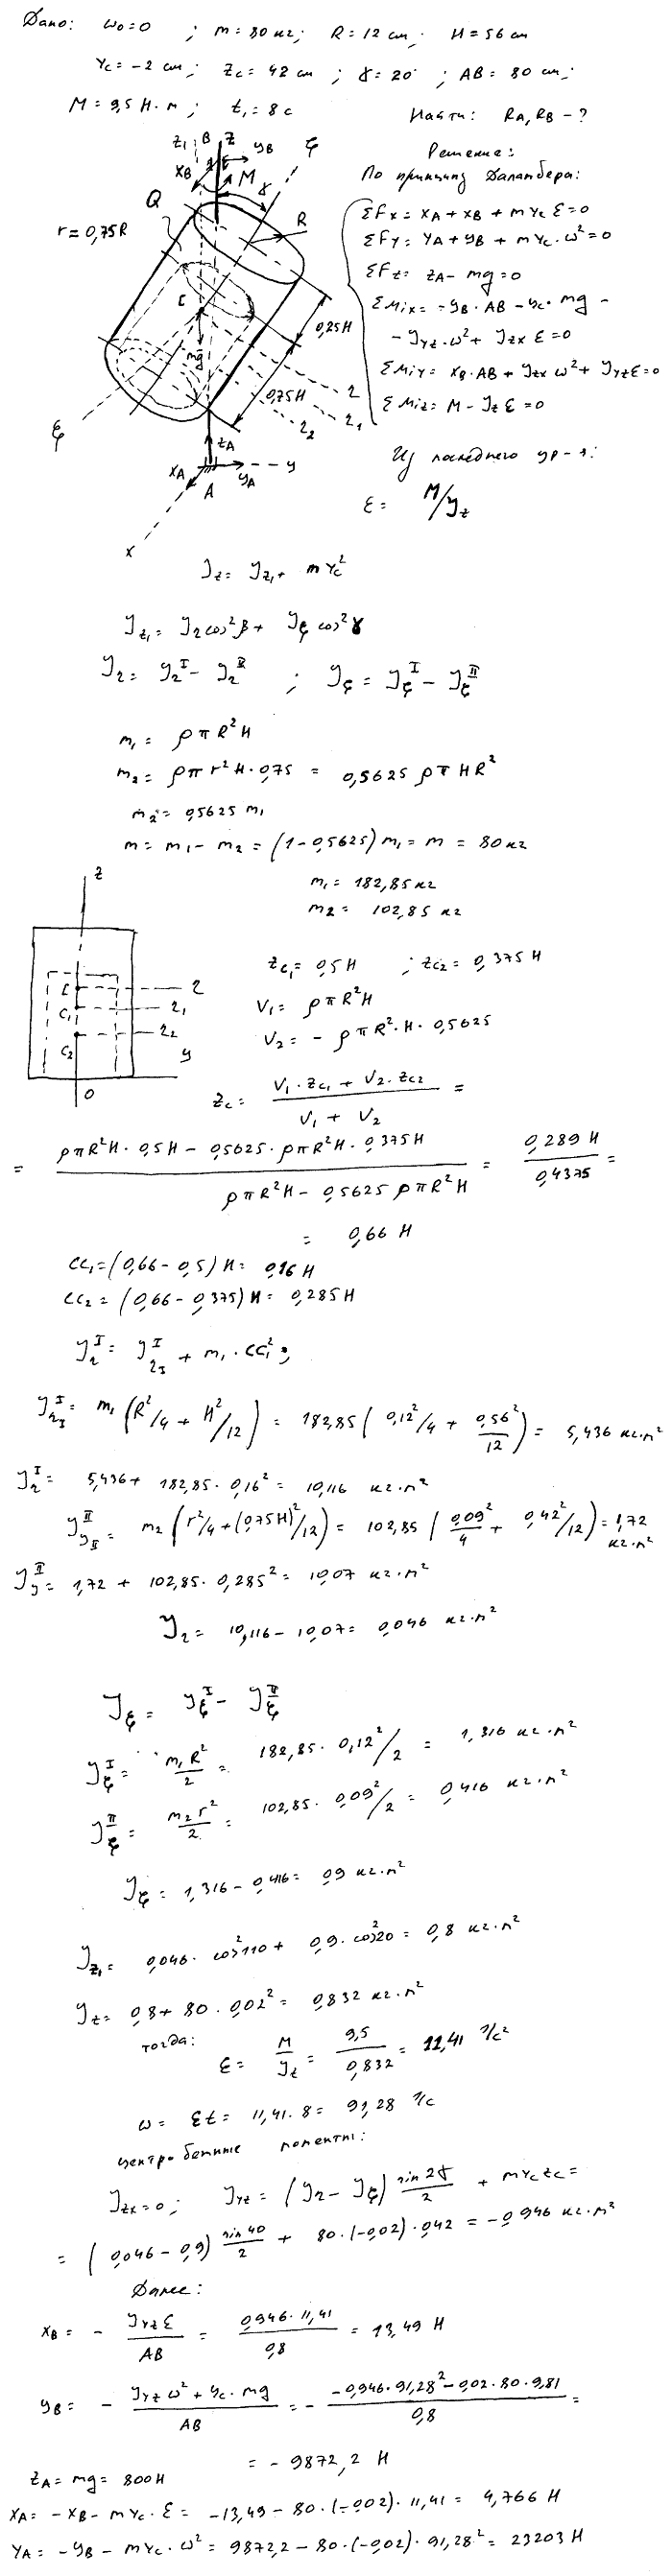 Дано: ω₀=0 ; m=80 кг; R=12 см; H=56 см
Yc=-2 см; Zc=42 см; γ=20°; AB=80 см;
M=9,5 Н·м; t₁=8 с Найти: RA, RB - ?
Решение:
По принципу Даламбера:
z₁ B Z yB ξ
xB M γ
Q R
r=0,75R
C
mg
0,25H
0,75H
2
2₁
2₂
ξ
zA
xA yA y
A
x
ΣFx = XA + XB + mYc ε = 0
ΣFy: YA + YB + mYc·ω² = 0
ΣFz: ZA - mg = 0
ΣMix = -YB·AB - Yc·mg -
- Jyz·ω² + Jzx ε = 0
ΣMiy = XB·AB + Jzx ω² + Jyz ε = 0
ΣMiz: M - Jz ε = 0
Из последнего ур-я:
ε = M/Jz
Jz = Jz₁ + mYc²
Jz₁ = J2 cos²β + Jξ cos²γ
J2 = J2ᴵ - J2ᴵᴵ ; Jξ = Jξᴵ - Jξᴵᴵ
m₁ = ρπR²H
m₂ = ρπr²H·0,75 = 0,5625 ρπHR²
m₂ = 0,5625 m₁
m = m₁ - m₂ = (1-0,5625)m₁ = m = 80 кг
m₁ = 182,85 кг
m₂ = 102,85 кг
z
C 2
C₁ 2₁
C₂ 2₂
y
0
Zc₁ = 0,5H ; Zc₂ = 0,375H
V₁ = ρπR²H
V₂ = - ρπR²·H·0,5625
Zc = (V₁·Zc₁ + V₂·Zc₂)/(V₁ + V₂) =
= (ρπR²H·0,5H - 0,5625·ρπR²H·0,375H)/(ρπR²H - 0,5625ρπR²H) = 0,289H/0,4375 =
= 0,66H
CC₁ = (0,66-0,5)H = 0,16H
CC₂ = (0,66-0,375)H = 0,285H
J2ᴵ = J2₁ᴵ + m₁·CC₁²;
J2₁ᴵ = m₁(R²/4 + H²/12) = 182,85(0,12²/4 + 0,56²/12) = 5,436 кг·м²
J2ᴵ = 5,436 + 182,85·0,16² = 10,116 кг·м²
Jyᴵᴵ = m₂(r²/4 + (0,75H)²/12) = 102,85(0,09²/4 + 0,42²/12) = 1,72 кг·м²
Jyᴵᴵ = 1,72 + 102,85·0,285² = 10,07 кг·м²
J2 = 10,116 - 10,07 = 0,046 кг·м²
Jξ = Jξᴵ - Jξᴵᴵ
Jξᴵ = m₁R²/2 = 182,85·0,12²/2 = 1,316 кг·м²
Jξᴵᴵ = m₂r²/2 = 102,85·0,09²/2 = 0,416 кг·м²
Jξ = 1,316 - 0,416 = 0,9 кг·м²
Jz₁ = 0,046·cos²110 + 0,9·cos²20 = 0,8 кг·м²
Jz = 0,8 + 80·0,02² = 0,832 кг·м²
тогда: ε = M/Jz = 9,5/0,832 = 11,41 1/с²
ω = εt = 11,41·8 = 91,28 1/с
Центробежные моменты:
Jzx = 0; Jyz = (J2 - Jξ) sin2γ/2 + mYcZc =
= (0,046 - 0,9) sin40/2 + 80·(-0,02)·0,42 = -0,946 кг·м²
Далее:
XB = - Jyz ε/AB = 0,946·11,41/0,8 = 13,49 Н
YB = - (Jyz ω² + Yc·mg)/AB = - (-0,946·91,28² - 0,02·80·9,81)/0,8 =
= -9872,2 Н
ZA = mg = 800Н
XA = -XB - mYc·ε = -13,49 - 80·(-0,02)·11,41 = 4,766 Н
YA = -YB - mYc·ω² = 9872,2 - 80·(-0,02)·91,28² = 23203 Н